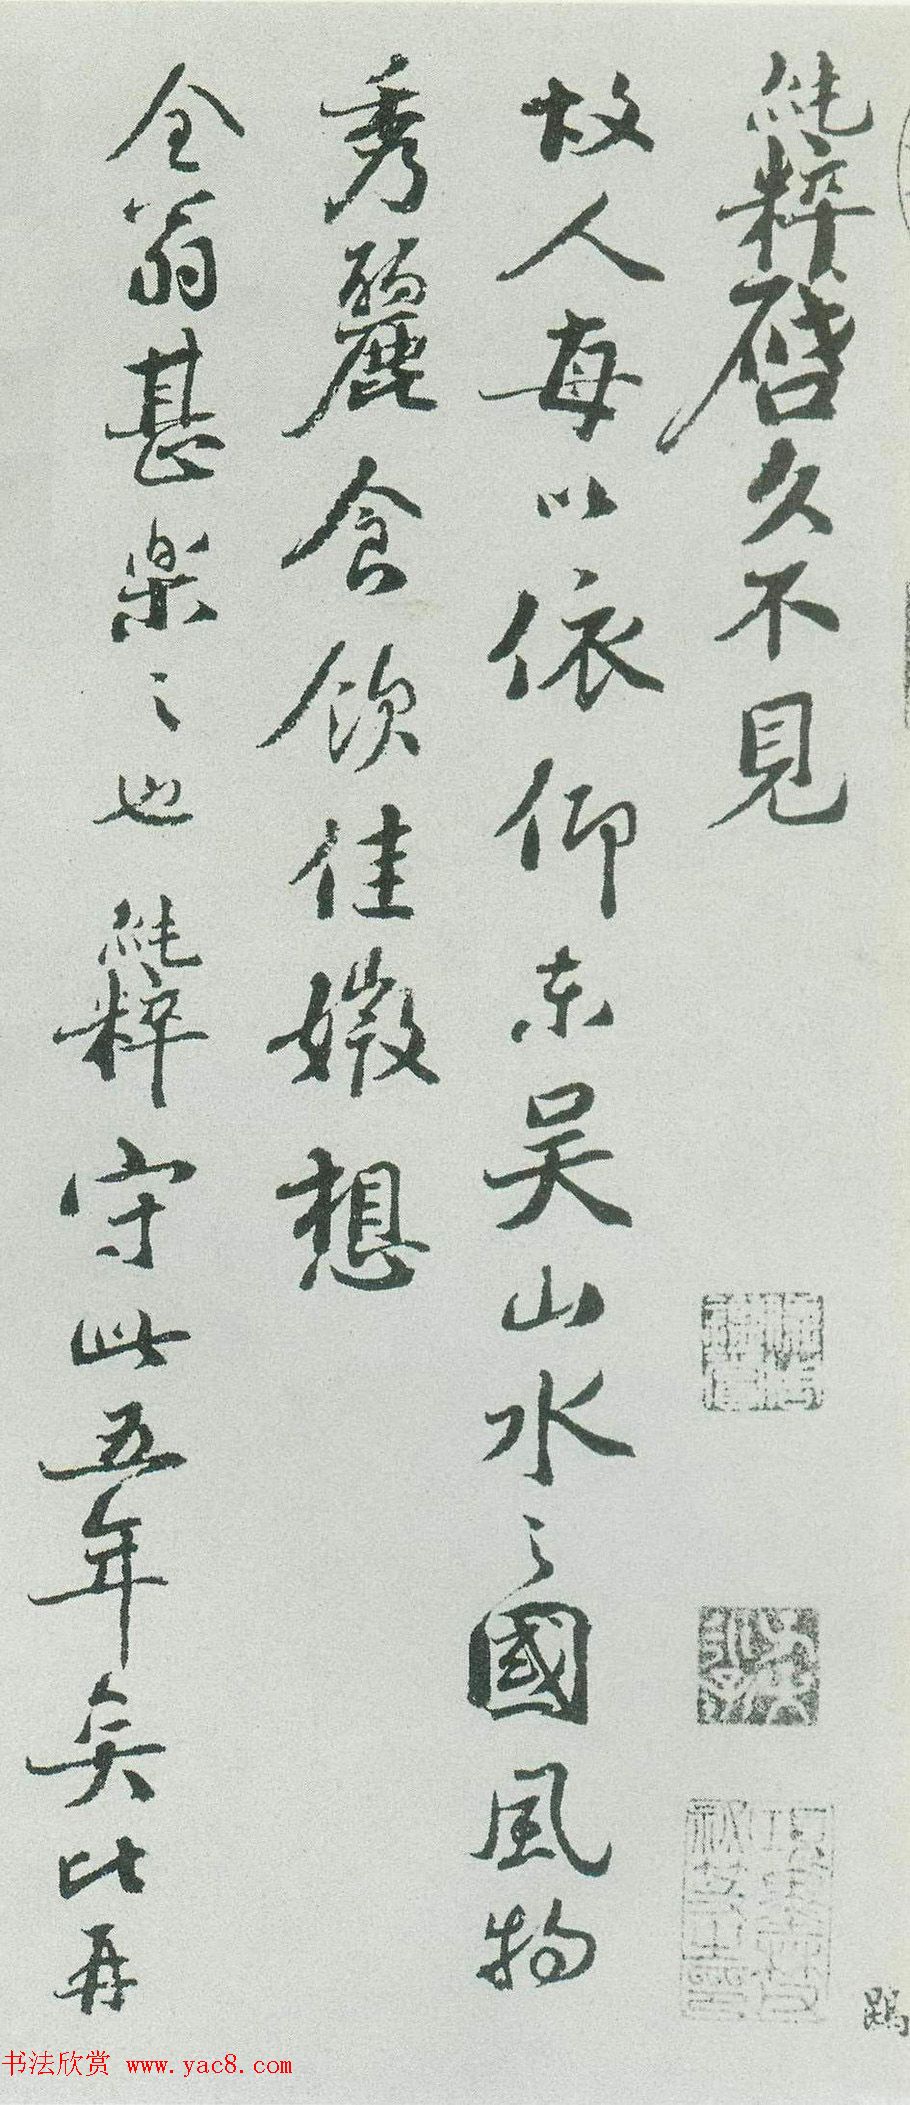 純粹啓久不見
故人每以依仰东吴山水之國風物
秀麗食飲佳媺想
全翁甚楽之也純粹守此五年矣比再
书法欣赏 www.yac8.com